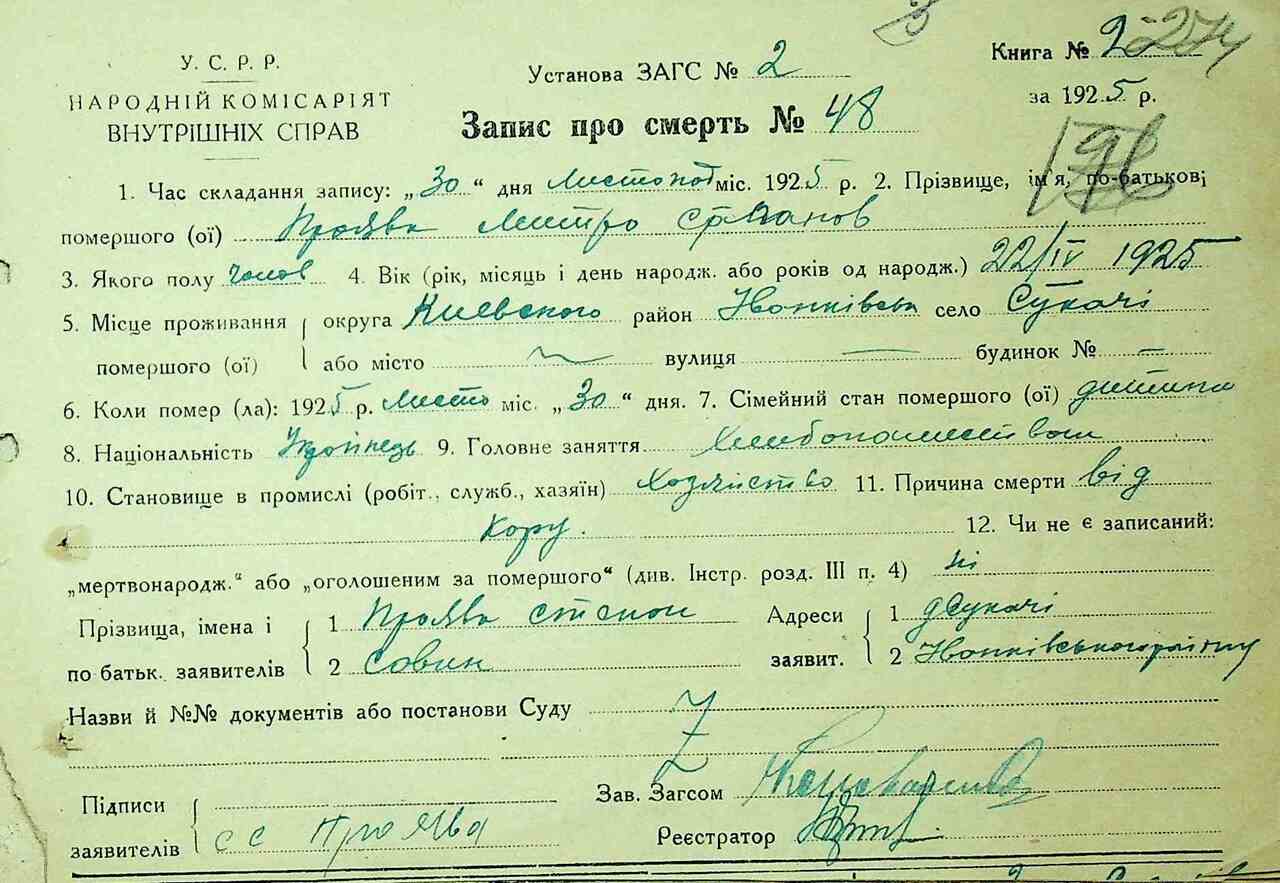 У. С. Р. Р.
НАРОДНІЙ КОМІСАРІЯТ
ВНУТРІШНІХ СПРАВ
Установа ЗАГС № 2
Книга № 2
за 1925 р.
Запис про смерть № 48
1. Час складання запису: „30“ дня Листопад міс. 1925 р. 2. Прізвище, ім'я, по-батькові
помершого (ої) Проява Митро Степанов
3. Якого полу чолов 4. Вік (рік, місяць і день народж. або років од народж.) 22/IV 1925
5. Місце проживання помершого (ої) округа Киевского район Іванківськ село Сукачі
або місто вулиця — будинок № —
6. Коли помер (ла): 1925 р. Листо міс. „30“ дня. 7. Сімейний стан помершого (ої) дитина
8. Національність Українець 9. Головне заняття
10. Становище в промислі (робіт., служб., хазяїн) Хозяйство 11. Причина смерти від
кору. 12. Чи не є записаний:
„мертвонародж.“ або „оголошеним за помершого“ (див. Інстр. розд. III п. 4) ні
Прізвища, імена і по батьк. заявителів 1 Проява Степан Адреси заявит. 1 Сукачі
2 Совин 2 Іванківського району
Назви й №№ документів або постанови Суду
Підписи заявителів
Зав. Загсом
с с Проява
Реєстратор